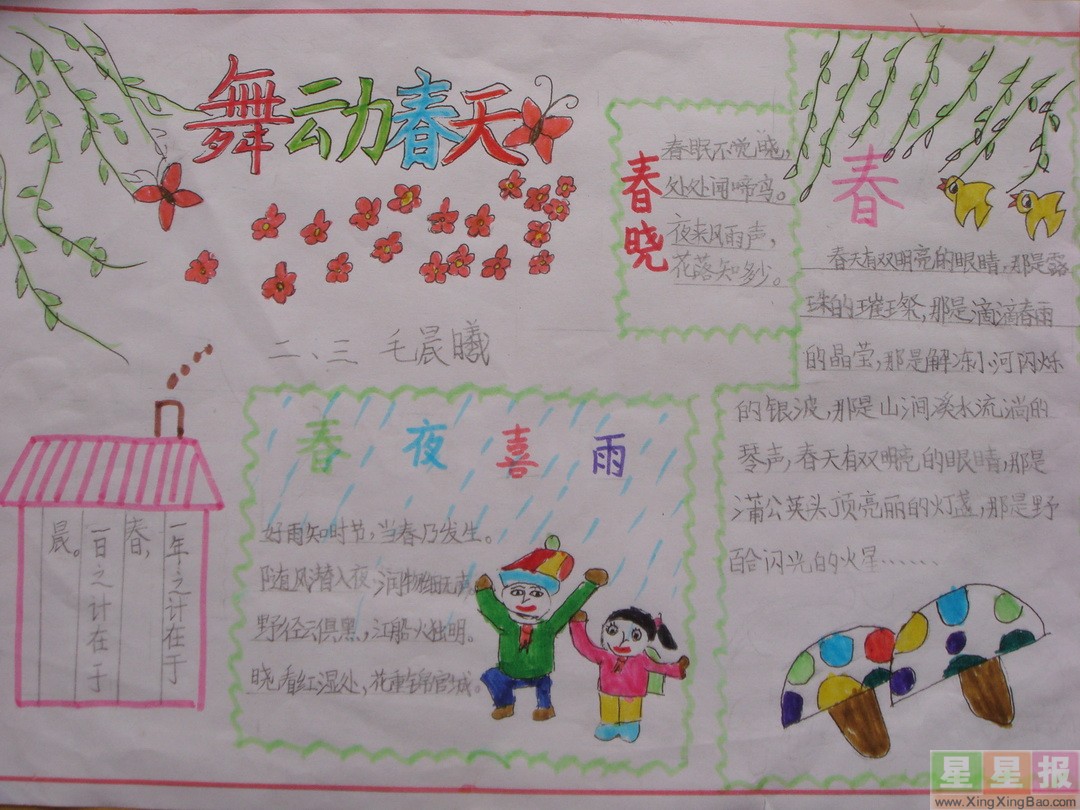 舞动春天
二、三 毛晨曦
春晓
春眠不觉晓,
处处闻啼鸟。
夜来风雨声,
花落知多少。
春
春天有双明亮的眼睛,那是露
珠的璀璨,那是滴滴春雨
的晶莹,那是解冻小河闪烁
的银波,那是山涧溪水流淌的
琴声,春天有双明亮的眼睛,那是
蒲公英头顶亮丽的灯盏,那是野
百合闪光的火星……
春夜喜雨
好雨知时节,当春乃发生。
随风潜入夜,润物细无声。
野径云俱黑,江船火独明。
晓看红湿处,花重锦官城。
一年之计在于
春,
一日之计在于
晨。
星星报
www.XingXingBao.com